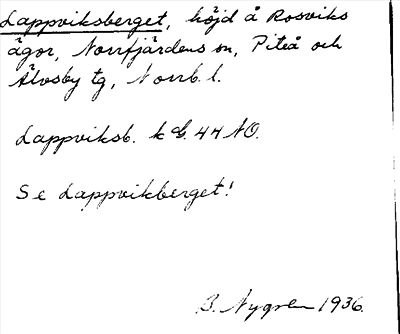 Lappviksberget, höjd å Rosviks
ägor, Norrfjärdens sn, Piteå och
Älvsby tg, Norrb. l.
Lappviksb. k Bl. 44 NO.
Se Lappvikberget!
B. Nygren 1936.